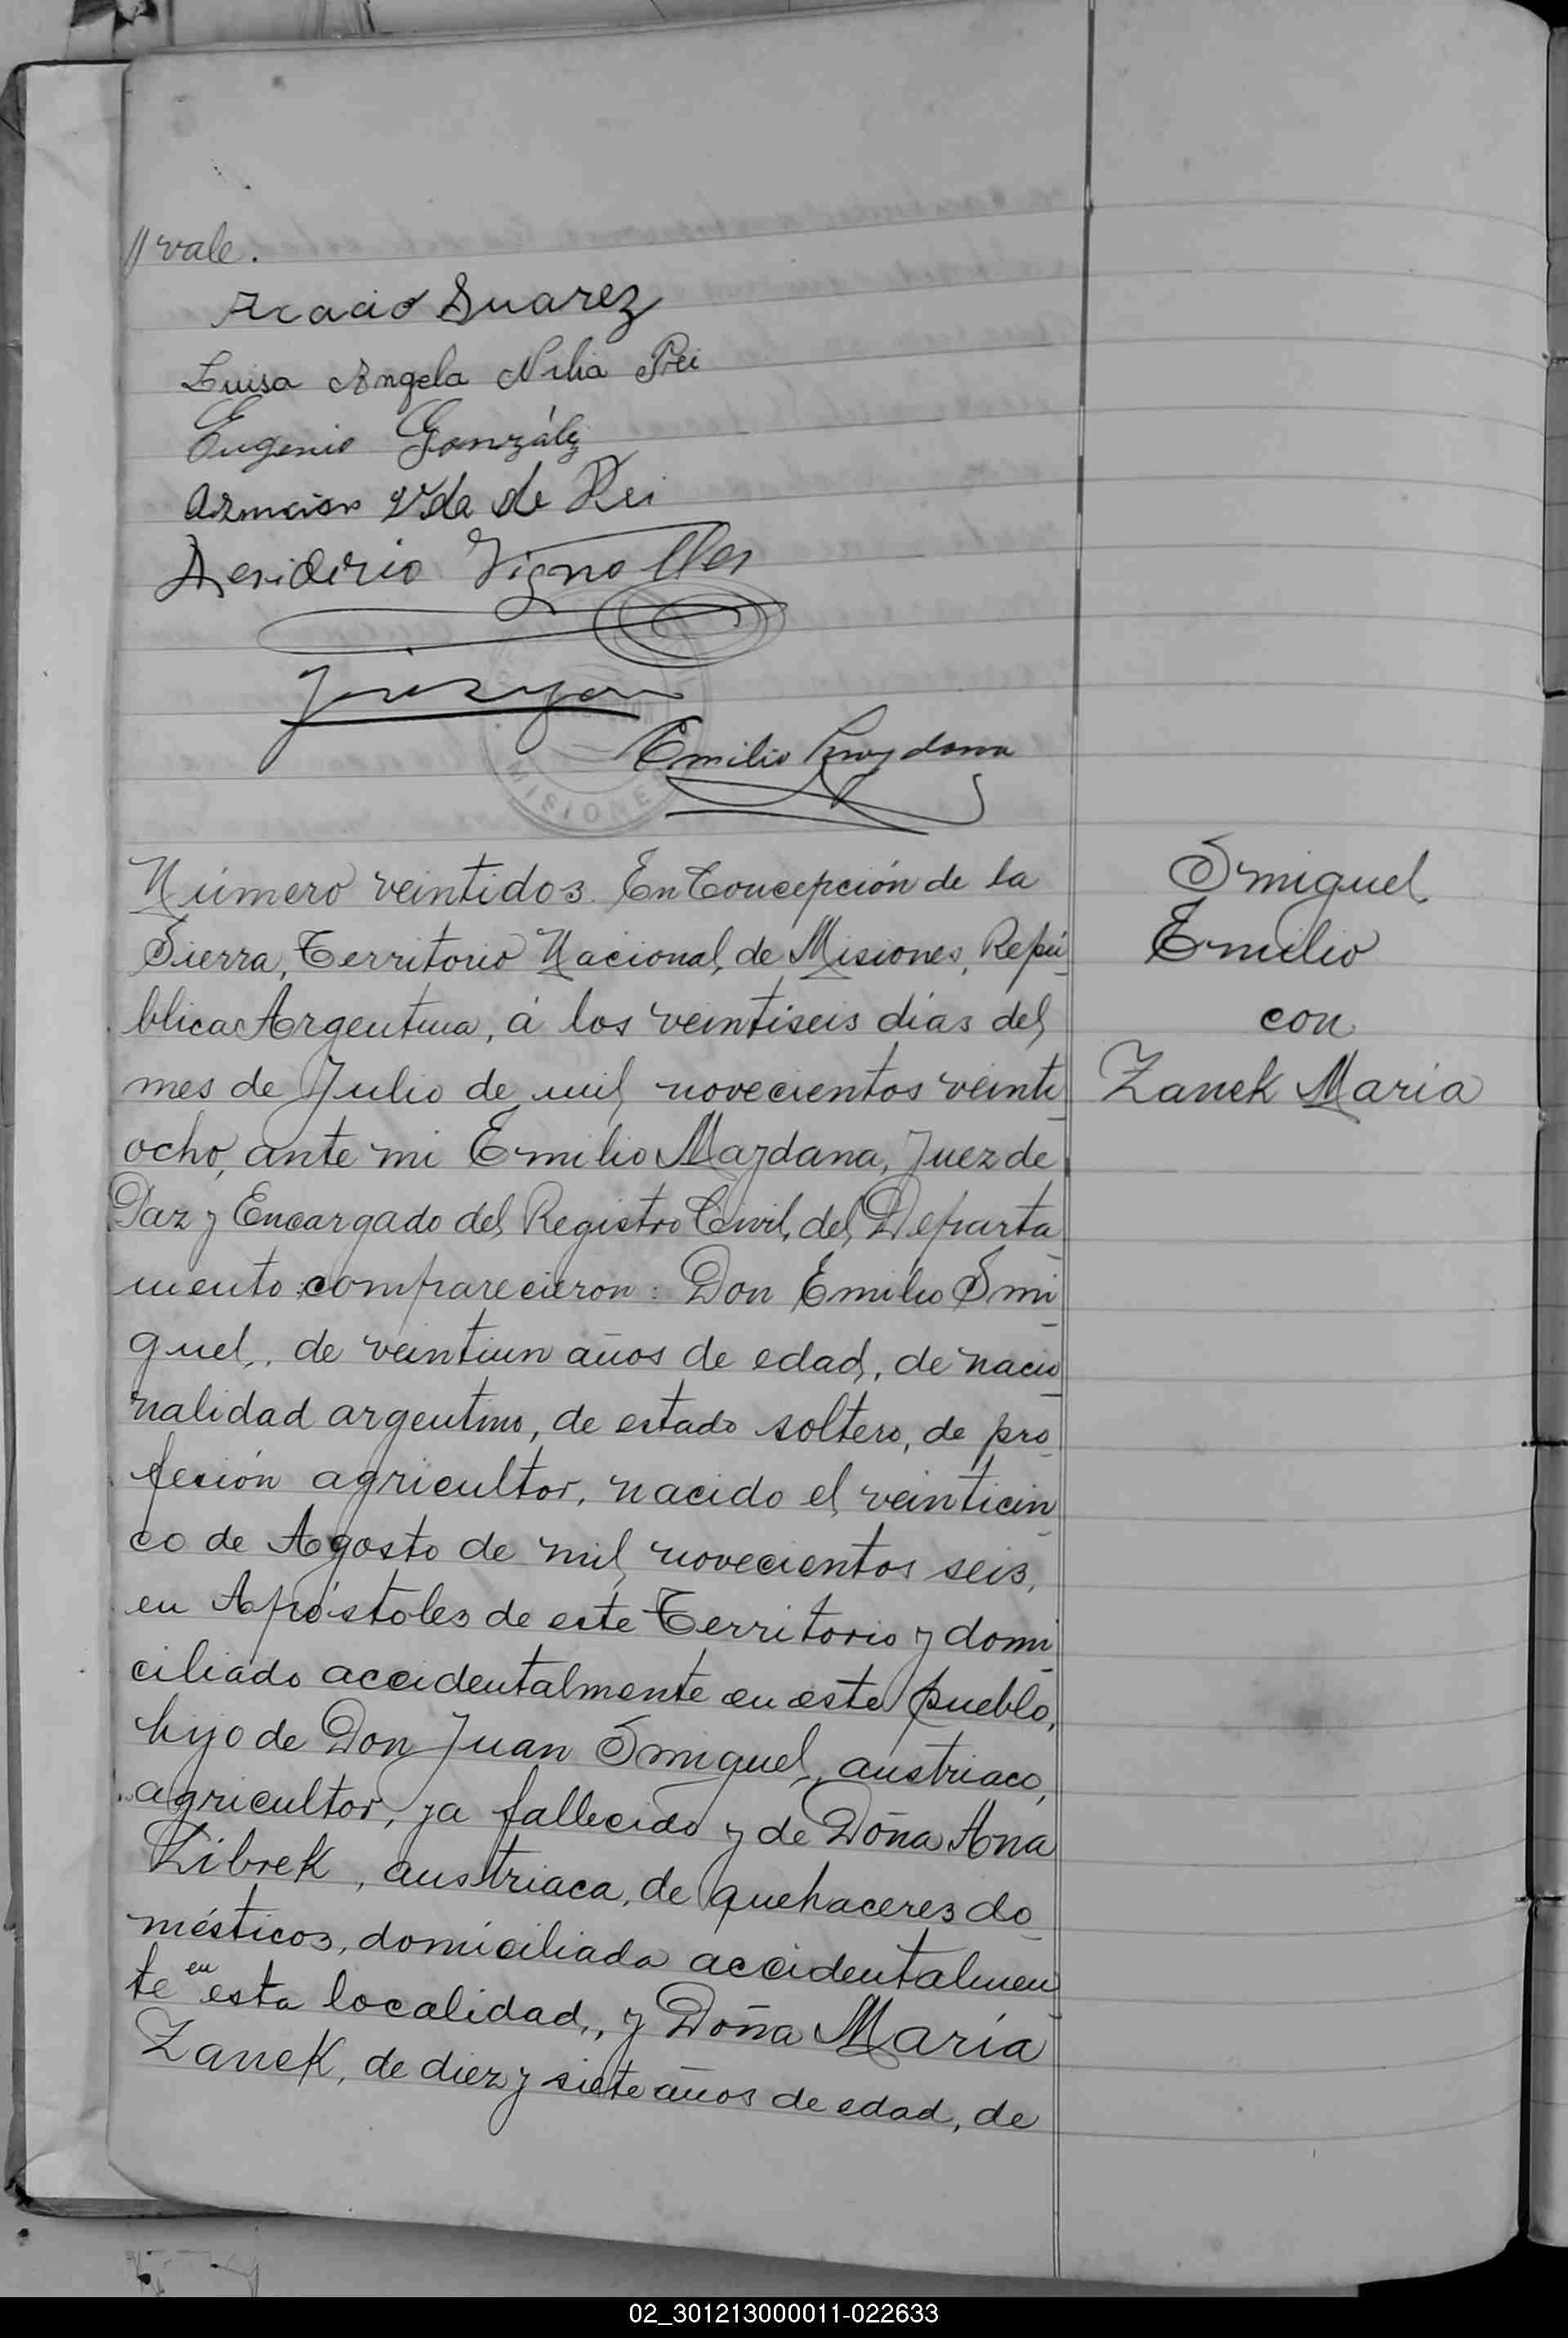 // vale.
Acacio Suarez
Luisa Angela Nilia Rei
Eugenio González
Asuncion Vda de Rei
Desiderio Vignolles
MISIONES
Emilio
Número veintidos. En Concepción de la
Sierra, Territorio Nacional, de Misiones, Repú
blica Argentina, á los veintiseis dias del
mes de Julio de mil novecientos veinti
ocho, ante mi Emilio Maydana, Juez de
Paz y Encargado del Registro Civil, del Departa
mento comparecieron: Don Emilio Smi
guel, de veintiun años de edad, de nacio
nalidad argentino, de estado soltero, de pro
fesión agricultor, nacido el veinticin
co de Agosto de mil novecientos seis,
en Apóstoles de este Territorio y domi
ciliado accidentalmente en este pueblo,
hijo de Don Juan Smiguel, austriaco,
agricultor, ya fallecido y de Doña Ana
Librek, austriaca, de quehaceres do
mésticos, domiciliada accidentalmen
te en esta localidad, y Doña María
Zanek, de diez y siete años de edad, de
Smiguel
Emilio
con
Zanek María
02_301213000011-022633